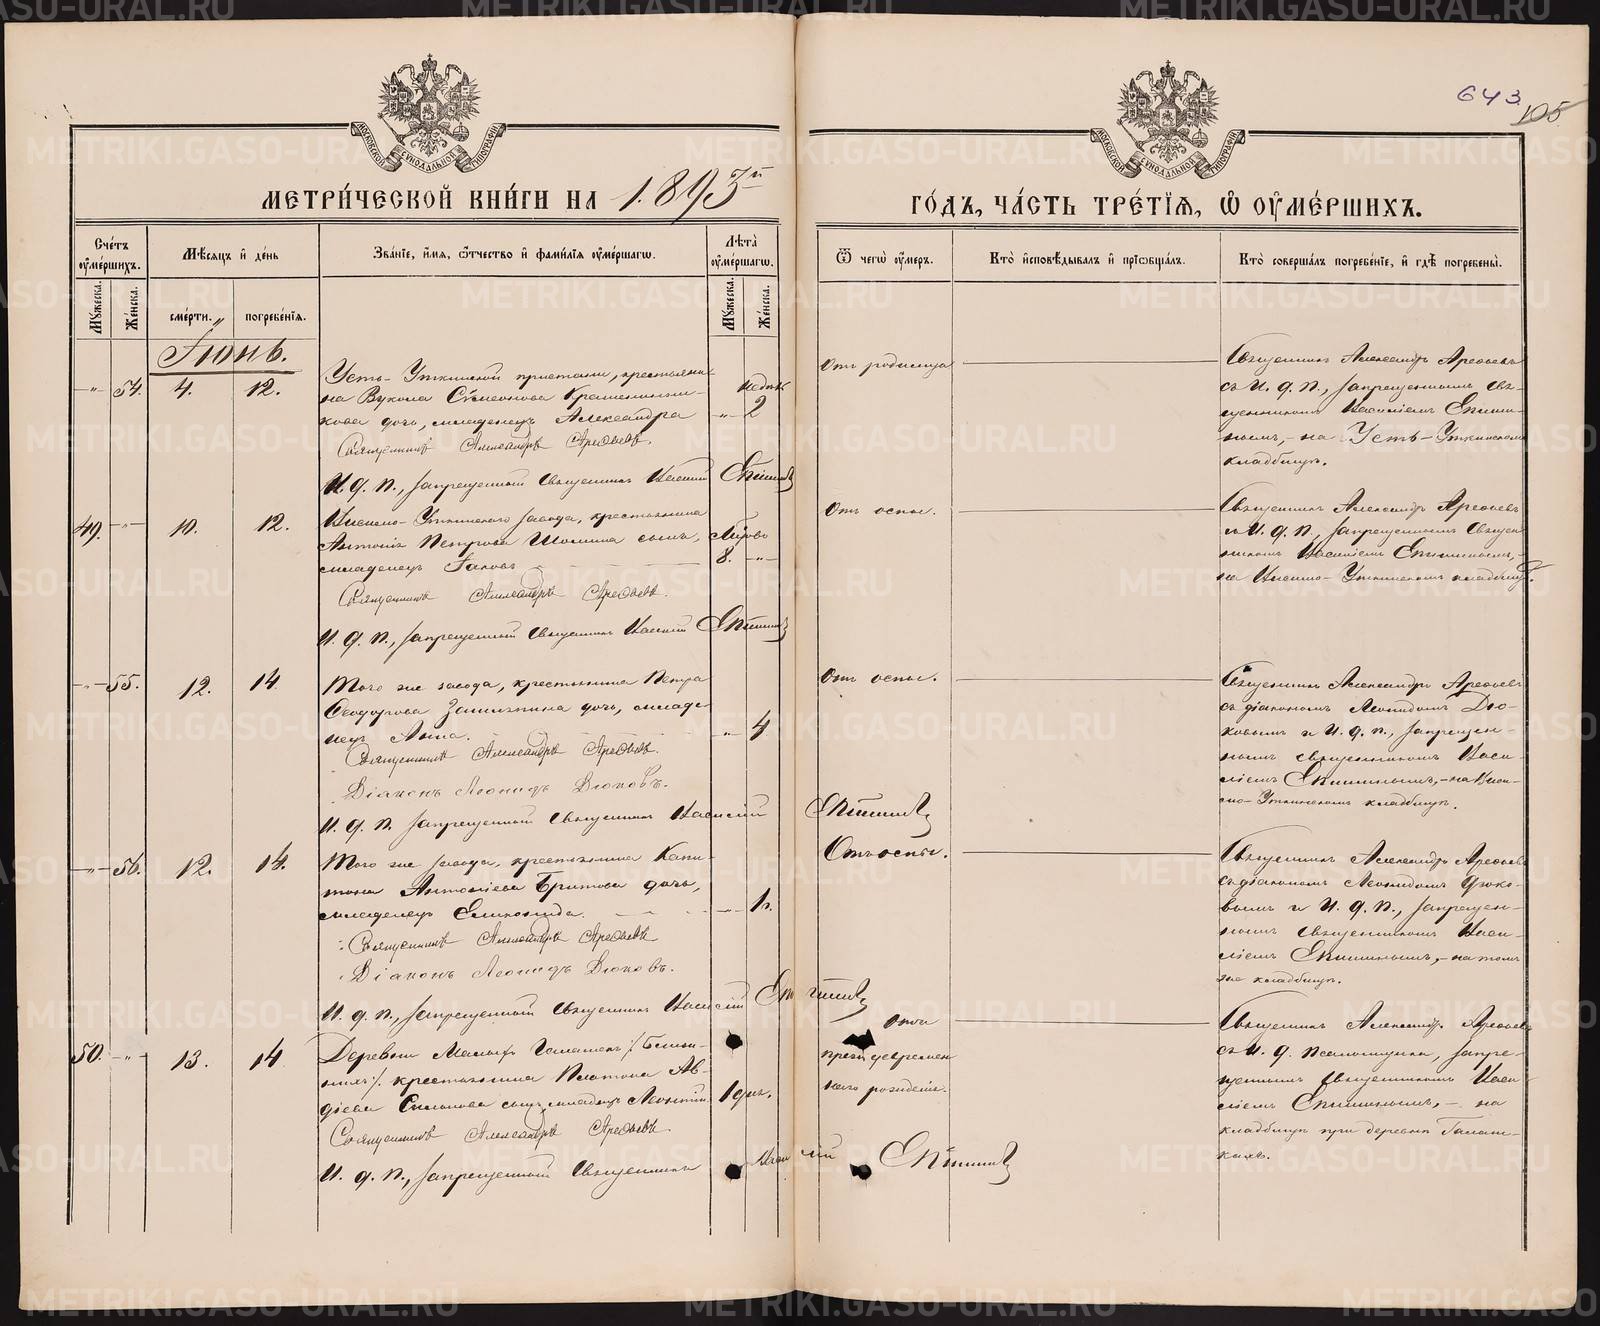 643.
105
МОСКОВСКОЙ СѴНОДАЛЬНОЙ ТИПОГРАФІИ
МОСКОВСКОЙ СѴНОДАЛЬНОЙ ТИПОГРАФІИ
МЕТРИ́ЧЕСКОЙ КНИ́ГИ НА 1893й
ГО́ДЪ, ЧА́СТЬ ТРЕ́ТЇѦ, Ѿ ОУ҆МЕ́РШИХЪ.
Сче́тъ оу҆ме́ршихъ.
Мꙋ́жеска.
Же́нска.
Мѣ́сѧцъ и҆ де́нь
сме́рти.
погребе́нїѧ.
Зва́нїе, и҆́мѧ, ѻ҆́тчество и҆ фами́лїѧ оу҆ме́ршагѡ.
Лѣ́та оу҆ме́ршагѡ.
Мꙋ́жеска.
Же́нска.
Ѿ чегѡ̀ оу҆́меръ.
Кто̀ и҆сповѣ́дывалъ и҆ прїѡбща́лъ.
Кто̀ соверша́лъ погребе́нїе, и҆ гдѣ̀ погребены̀.
Іюнь.
-"- 54. 4. 12.
Усть-Уткинской пристани, крестьяни-
на Вукола Сѵмеонова Крашенинни-
кова дочь, младенецъ Александра
Священникъ Александръ Арефьевъ.
И. д. п., запрещенный священникъ Василій Епишинъ
недѣль
-"- 2
Отъ родимца
Священникъ Александръ Арефьевъ
съ И. д. п., запрещеннымъ свя-
щенникомъ Василіемъ Епиши-
нымъ,- на Усть-Уткинскомъ
кладбищѣ.
49. -"- 10. 12.
Висимо-Уткинскаго завода, крестьянина
Антонія Петрова сынъ,
младенецъ Іаковъ
Священникъ Александръ Арефьевъ.
И. д. п., запрещенный священникъ Василій Епишинъ
8. -"-
Отъ оспы.
Священникъ Александръ Арефьевъ
съ И. д. п., запрещеннымъ священ-
никомъ Василіемъ Епишинымъ,-
на Висимо-Уткинскомъ кладбищѣ.
-"- 55. 12. 14.
Того же завода, крестьянина Петра
Ѳеодорова дочь, младе-
нецъ Анна.
-"- 4
Священникъ Александръ Арефьевъ.
Діаконъ Леонидъ Дюковъ.
И. д. п. запрещенный священникъ Василій Епишинъ
Отъ оспы.
Священникъ Александръ Арефьевъ
съ діакономъ Леонидомъ Дю-
ковымъ и И. д. п., запрещен-
нымъ священникомъ Васи-
ліемъ Епишинымъ,-на Виси-
мо-Уткинскомъ кладбищѣ.
-"- 56. 12. 14.
Того же завода, крестьянина Капи-
тона Антоніева дочь,
младенецъ
-"- 1 г.
Священникъ Александръ Арефьевъ
Діаконъ Леонидъ Дюковъ.
И. д. п., запрещенный священникъ Василій Епишинъ
Отъ оспы.
Священникъ Александръ Арефьевъ
съ діакономъ Леонидомъ Дюко-
вымъ и И. д. п., запрещен-
нымъ священникомъ Васи-
ліемъ Епишинымъ,- на томъ
же кладбищѣ.
50. -"- 13. 14
Деревни Малыхъ Галашекъ
крестьянина Платона Ав-
діева сынъ, младенецъ Леонтій
1 день.
Священникъ Александръ Арефьевъ.
И. д. п., запрещенный священникъ Василій Епишинъ
Отъ
преждевремен-
наго рожденія.
Священникъ Александръ Арефьевъ
съ И. д. псаломщика, запре-
щеннымъ священникомъ Васи-
ліемъ Епишинымъ, - на
кладбищѣ при деревнѣ Галаш-
кахъ.